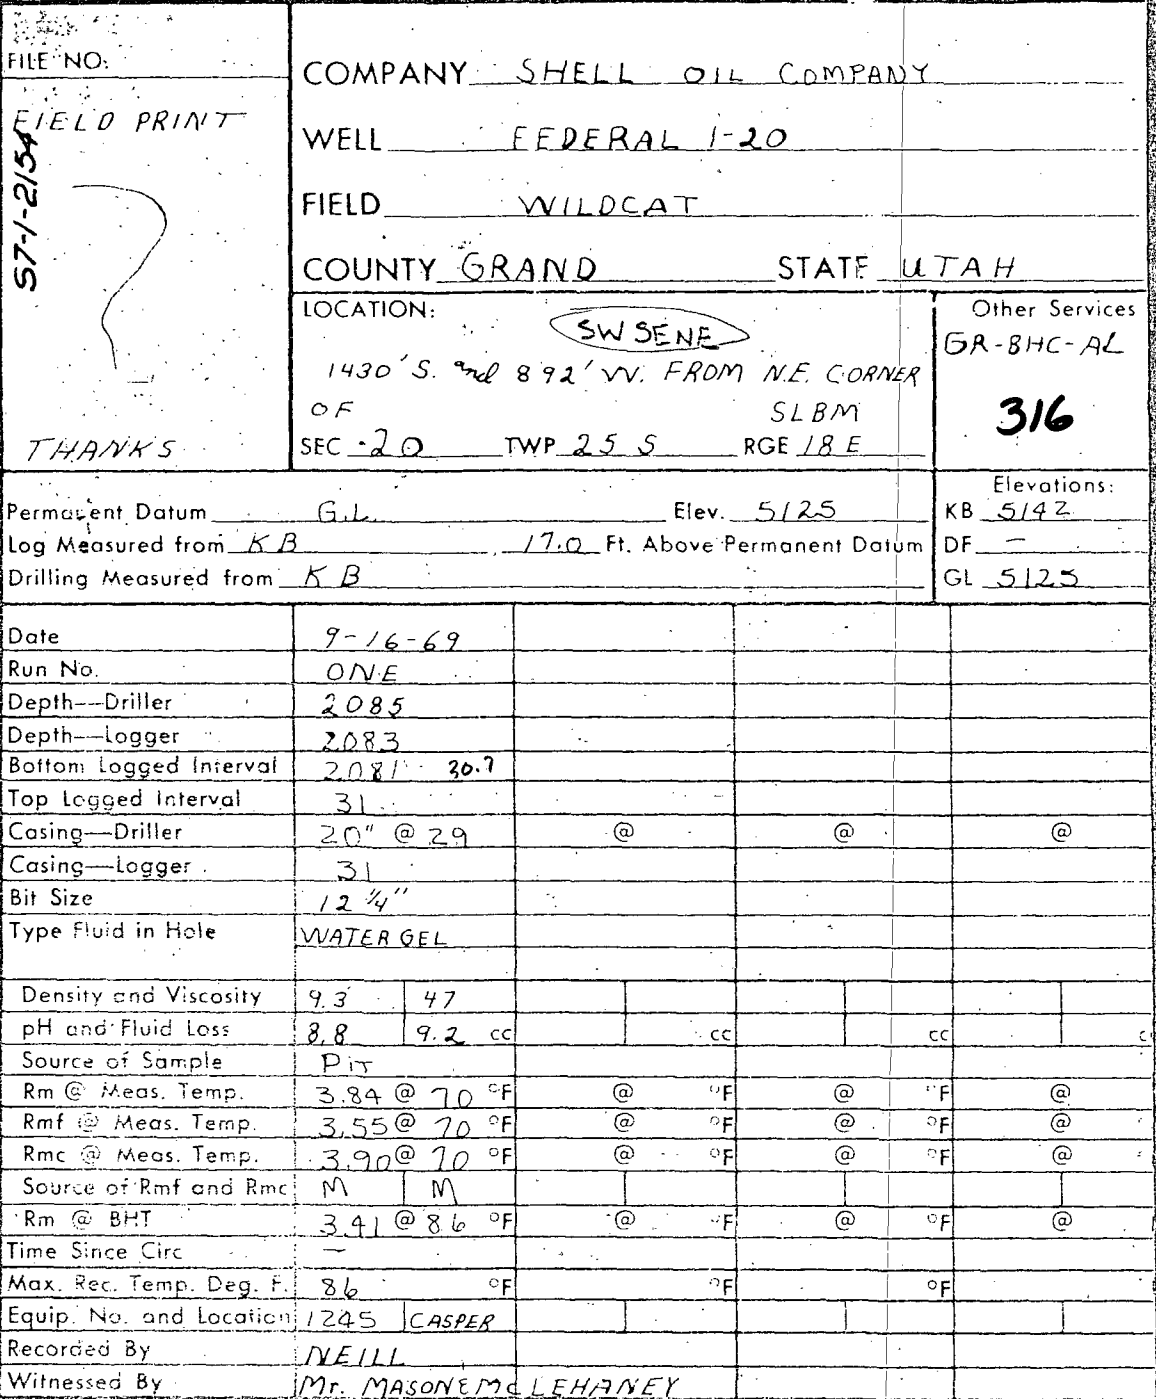 FILE NO:
FIELD PRINT
57-1-2154
THANKS
COMPANY SHELL OIL COMPANY
WELL FEDERAL 1-20
FIELD WILDCAT
COUNTY GRAND STATE UTAH
LOCATION:
SW SENE
1430' S. and 892' W. FROM N.E. CORNER
OF SLBM
SEC 20 TWP 25 S RGE 18 E
Other Services
GR-BHC-AL
316
Permanent Datum G.L. Elev. 5125
Log Measured from KB 17.0 Ft. Above Permanent Datum
Drilling Measured from KB
Elevations:
KB 5142
DF —
GL 5125
Date 9-16-69
Run No. ONE
Depth—Driller 2085
Depth—Logger 2083
Bottom Logged Interval 2081 30.7
Top Logged Interval 31
Casing—Driller 20" @ 29 @ @ @
Casing—Logger 31
Bit Size 12 1/4"
Type Fluid in Hole WATER GEL
Density and Viscosity 9.3 47
pH and Fluid Loss 8.8 9.2 cc cc cc c
Source of Sample PIT
Rm @ Meas. Temp. 3.84 @ 70 °F @ °F @ °F @
Rmf @ Meas. Temp. 3.55 @ 70 °F @ °F @ °F @
Rmc @ Meas. Temp. 3.90 @ 70 °F @ °F @ °F @
Source of Rmf and Rmc M M
Rm @ BHT 3.41 @ 86 °F @ °F @ °F @
Time Since Circ —
Max. Rec. Temp. Deg. F. 86 °F °F °F
Equip. No. and Location 1245 CASPER
Recorded By NEILL
Witnessed By Mr. MASON & McLEHANEY